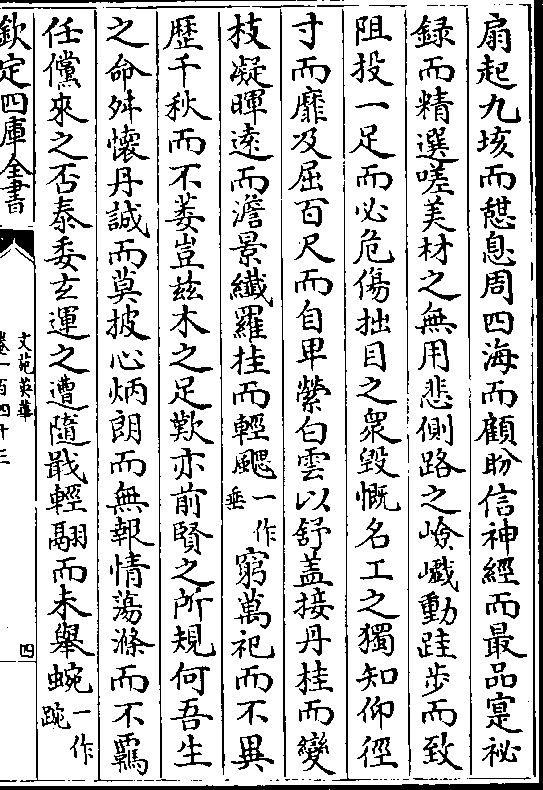 扇起九垓而憇息周四海而顧盼信神經而最品寔祕
録而精選嗟美材之無用悲側路之嶮巇動跬步而致
阻投一足而必危傷拙目之衆毀慨名工之獨知仰徑
寸而靡及屈百尺而自卑縈白雲以舒盖接丹桂而變
枝凝暉逺而澹景纎羅挂而輕颸一作垂窮萬祀而不異
歴千秋而不萎豈兹木之足歎亦前賢之所規何吾生
之命舛懐丹誠而莫披心炳朗而無報情蕩滌而不羈
任儻來之否泰委玄運之遭隨戢輕翮而未舉蜿一作踠
欽定四庫全書
文苑英華
卷一百四十三
四